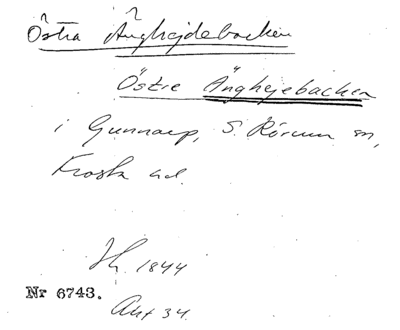 Östra Änghejdebacken
Östre Änghejebacken
i Gunnarp, S. Rörum sn,
Frosta hd.
Jh. 1844
Nr 6743.
Akt 34.